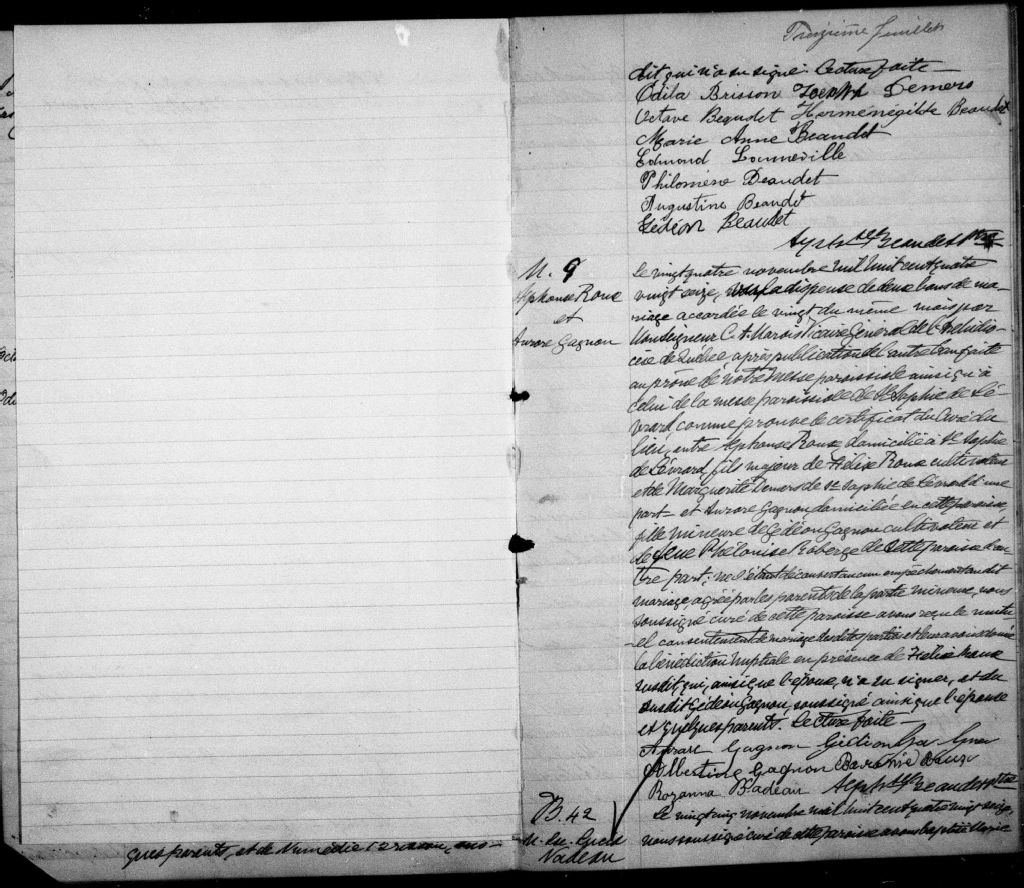 Treizième feuillet
dit qui n'a su signer. Lecture faite —
Odila Brisson Joseph Demers
Octave Beaudet Herménégilde Beaudet
Marie Anne Beaudet
Edmond
Philomène Beaudet
Augustine Beaudet
Gédéon Beaudet
Beaudet Ptre
M. 9
Alphonse Roux
et
Aurore Gagnon
Le vingt quatre novembre mil huit cent quatre
vingt seize, vu la dispense de deux bans de ma-
riage accordée le vingt du même mois par
Monseigneur C. A. Marois Vicaire Général de l'Archidio-
cèse de Québec après publication de l'autre ban faite
au prône de notre messe paroissiale ainsi qu'à
celui de la messe paroissiale de Ste Sophie de Lé-
vrard, comme prouve le certificat du Curé du
lieu, entre Alphonse Roux domicilié à Ste Sophie
de Lévrard, fils majeur de Félix Roux cultivateur
et de Marguerite Demers de Ste Sophie de Lévrard d'une
part et Aurore Gagnon, domiciliée en cette paroisse,
fille mineure de Gédéon Gagnon cultivateur et
de feue Philonise Roberge de cette paroisse d'au-
tre part; ne s'étant découvert aucun empêchement au dit
mariage, agréé par les parents de la partie mineure, nous
soussigné curé de cette paroisse avons reçu le mutu-
-el consentement de mariage des dites parties et leur avons donné
la bénédiction nuptiale en présence de Félix Roux
susdit, qui, ainsi que l'époux, n'a su signer, et du
susdit Gédéon Gagnon, soussigné ainsi que l'épouse
et quelques parents. Lecture faite —
Aurore Gagnon Gédéon Gagnon
Albertine Gagnon
Rozanna Beaudet Ptre
B. 42
M. Lu.
Nadeau
Le vingt cinq novembre mil huit cent quatre vingt seize,
nous soussigné curé de cette paroisse avons baptisé Marie
ques parents, et de Numédie Brisson,